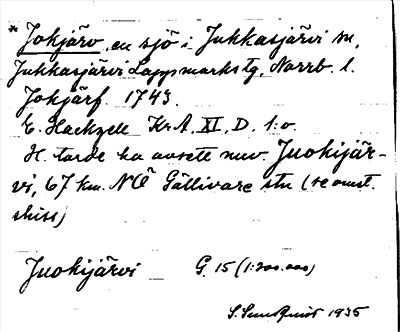 * Jokjärv, en sjö i Jukkasjärvi sn,
Jukkasjärvi Lappmarks tg, Norrb. l.
Jokjärf. 1743.
E. Hackzell KrA, XI, D. 1:o.
H. torde ha avsett nuv. Juokijär-
vi, 67 km. NÖ Gällivare stn (se omst.
skiss)
Juokijärvi G. 15 (1:200.000)
S. Sundquist 1935